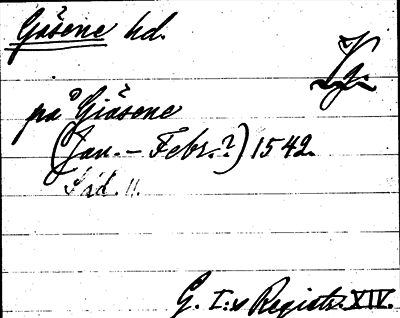 Gåsene hd.
på Giåsene
(Jan. – Febr.?) 1542.
Sid. 11.
G. I:s Registr. XIV.